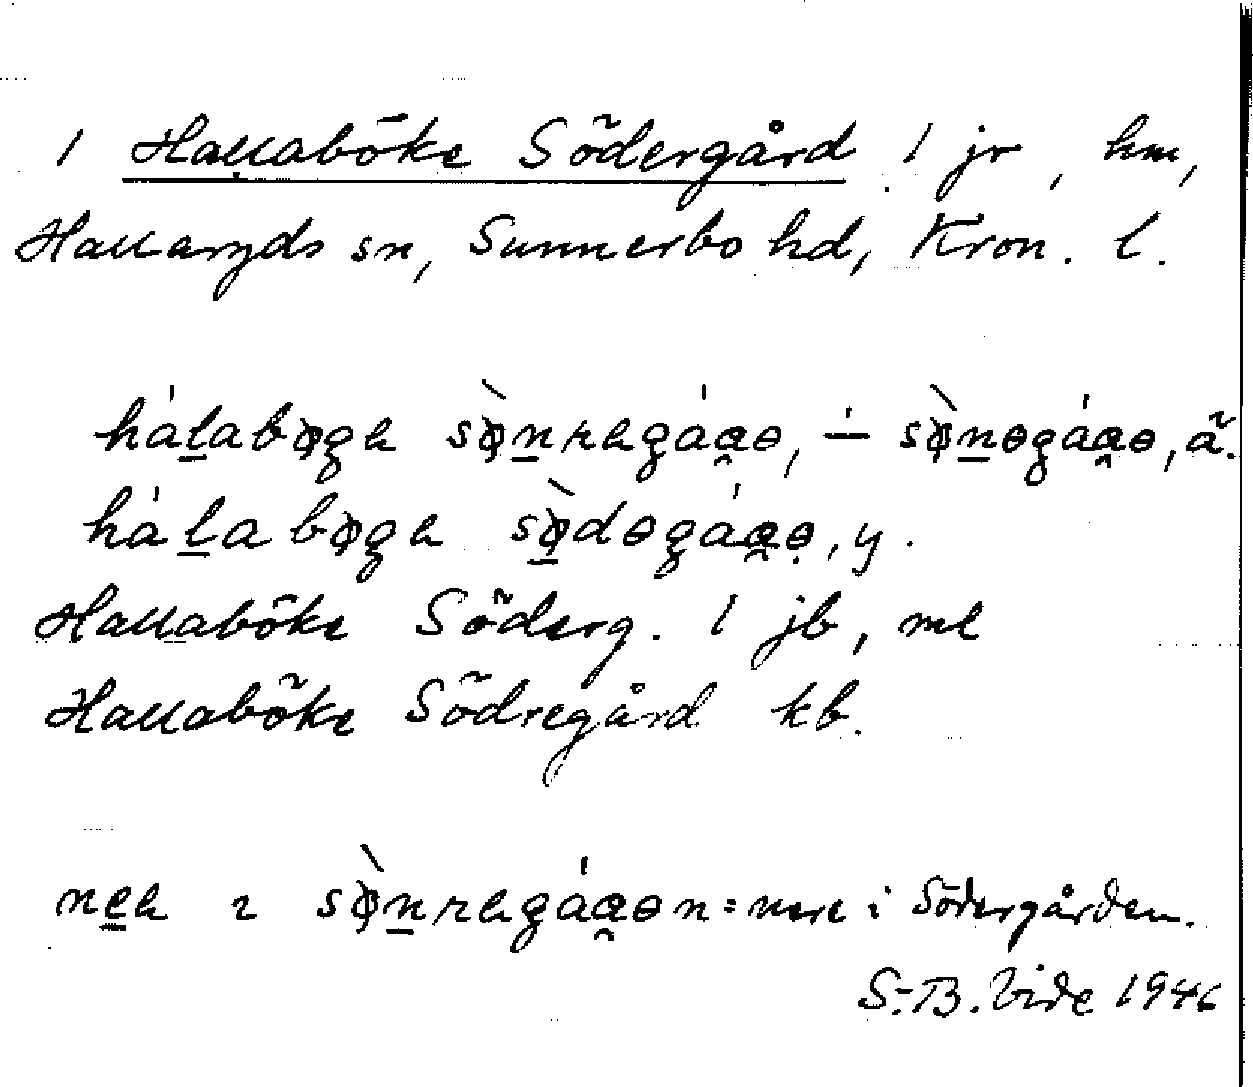 1 Hallaböke Södergård 1 jr, hm,
Hallaryds sn, Sunnerbo hd, Kron. l.
hálabøgɐ sø̀nrɐgáɑə, ∸ sø̀nəgáɑə, ä.
hálabøgɐ sø̀dəgáɑə, y.
Hallaböke Söderg. 1 jb, ml
Hallaböke Södregård kb.
neɐ ı sø̀nrɐgáɑən = nere i Södergården.
S.-B. Vide 1946